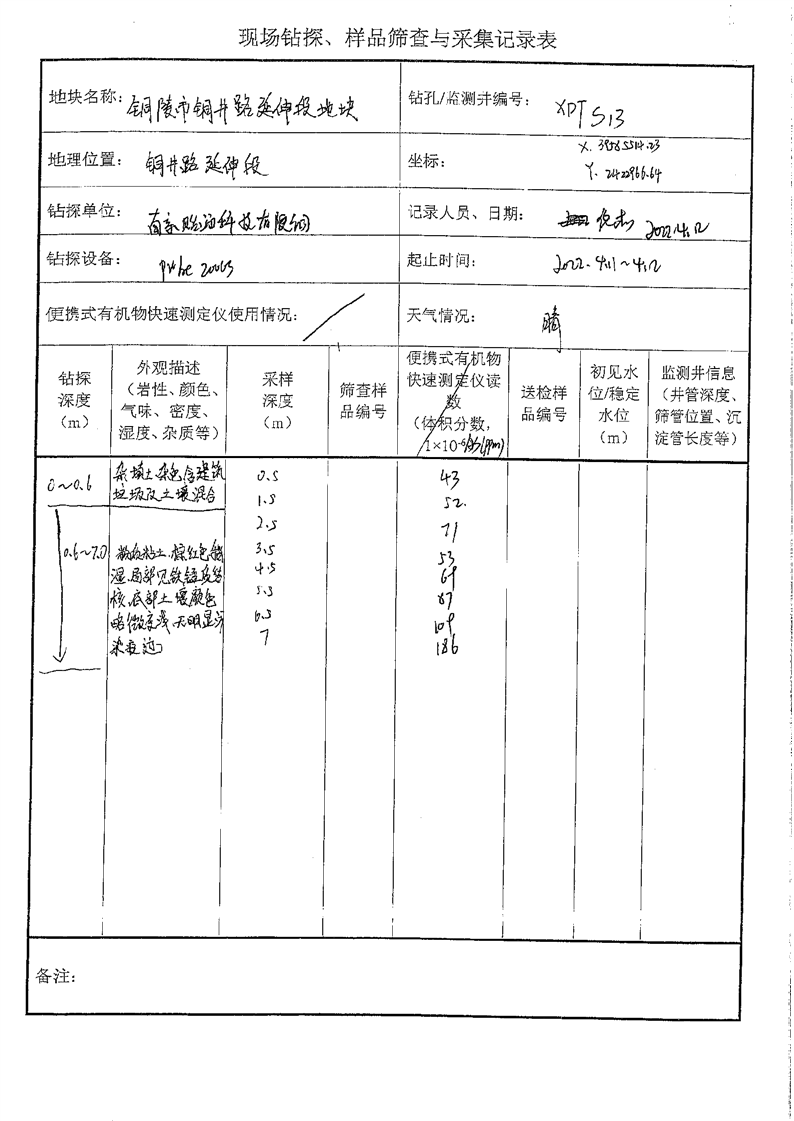 现场钻探、样品筛查与采集记录表
地块名称： 铜陵市铜井路延伸段地块
钻孔/监测井编号： XPT S13
地理位置： 铜井路延伸段
坐标： X. 39585514.23
Y. 2422966.64
钻探单位： 有限公司
记录人员、日期： 2022.4.12
钻探设备：
起止时间： 2022.4.11～4.12
便携式有机物快速测定仪使用情况：
天气情况： 晴
钻探
深度
（m）
外观描述
（岩性、颜色、
气味、密度、
湿度、杂质等）
采样
深度
（m）
筛查样
品编号
便携式有机物
快速测定仪读
数
（体积分数，
1×10-6 (ppm)
送检样
品编号
初见水
位/稳定
水位
（m）
监测井信息
（井管深度、
筛管位置、沉
淀管长度等）
0～0.6
杂填土.杂色含建筑
垃圾及土壤混合
0.6～7.0
粉质粘土.棕红色稍
湿.局部见铁锰质结
核.底部土壤颜色
略微变浅.无明显污
染痕迹
0.5 43
1.5 52
2.5 71
3.5 53
4.5 69
5.5 87
6.5 109
7 186
备注：